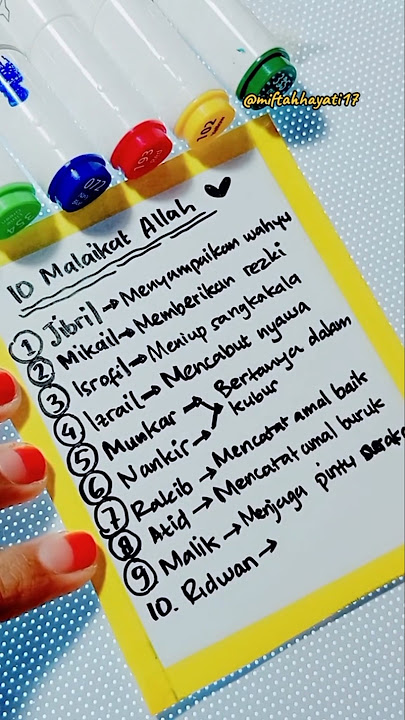 354
072
193
102
353
@miftahhayati17
10 Malaikat Allah
1 Jibril → Menyampaikan wahyu
2 Mikail → Memberikan rezki
3 Isrofil → Meniup sangkakala
4 Izrail → Mencabut nyawa
5 Munkar → Bertanya dalam
6 Nankir → kubur
7 Rakib → Mencatat amal baik
8 Atid → Mencatat amal buruk
9 Malik → Menjaga pintu
10. Ridwan →